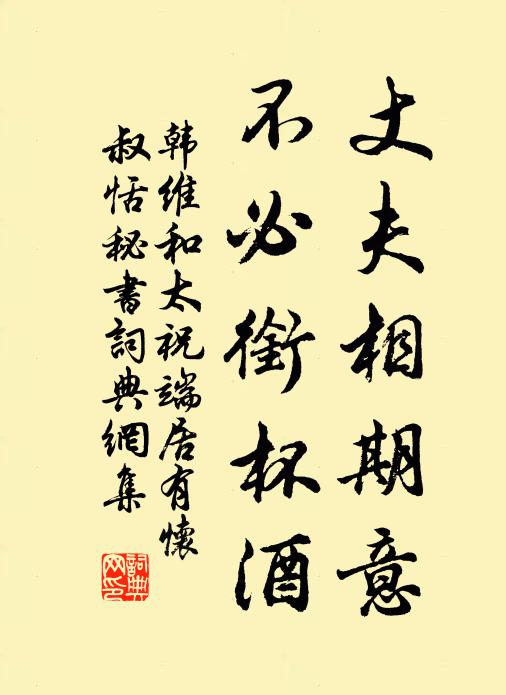 丈夫相期意
不必銜杯酒
韩维和太祝端居有懷
叔恬秘書詞典網集
詞典网印